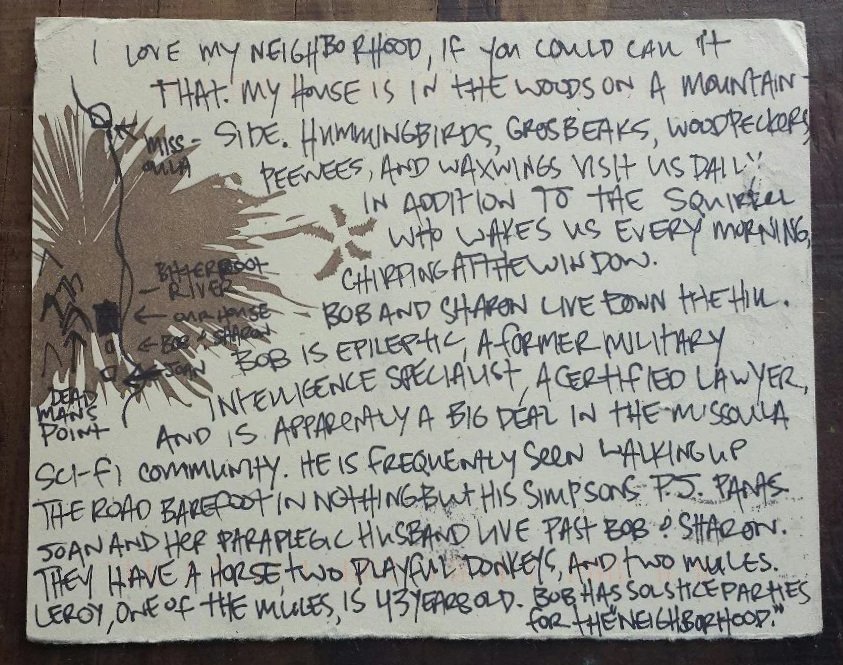 I LOVE MY NEIGHBORHOOD, IF YOU COULD CALL IT
THAT. MY HOUSE IS IN THE WOODS ON A MOUNTAIN-
SIDE. HUMMINGBIRDS, GROSBEAKS, WOODPECKERS,
PEEWEES, AND WAXWINGS VISIT US DAILY
IN ADDITION TO THE SQUIRREL
WHO WAKES US EVERY MORNING,
CHIRPING AT THE WINDOW.
BOB AND SHARON LIVE DOWN THE HILL.
BOB IS EPILEPTIC, A FORMER MILITARY
INTELLIGENCE SPECIALIST, A CERTIFIED LAWYER,
AND IS APPARENTLY A BIG DEAL IN THE MISSOULA
SCI-FI COMMUNITY. HE IS FREQUENTLY SEEN WALKING UP
THE ROAD BAREFOOT IN NOTHING BUT HIS SIMPSONS P.J. PANTS.
JOAN AND HER PARAPLEGIC HUSBAND LIVE PAST BOB & SHARON.
THEY HAVE A HORSE, TWO PLAYFUL DONKEYS, AND TWO MULES.
LEROY, ONE OF THE MULES, IS 43 YEARS OLD. BOB HAS SOLSTICE PARTIES
FOR THE "NEIGHBORHOOD."
MISS-
OULA
BITTERROOT
RIVER
OUR HOUSE
BOB & SHARON
JOAN
DEAD
MAN'S
POINT